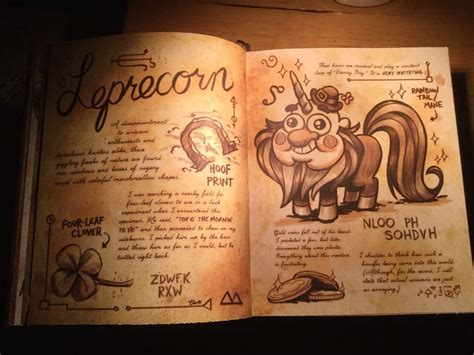 Leprecorn
A disappointment
to unicorn
enthusiasts and
leprechaun hunters alike, these
giggling freaks of nature are found
near rainbows and bowls of sugary
cereal with colorful marshmallow shapes.
HOOF
PRINT
I was searching a nearby field for
four-leaf clovers to use in a luck
experiment when I encountered this
specimen. He said, "TOP O' THE MORNIN'
TO YA!" and then proceeded to chew on my
sideburns. I picked him up by the horn
and threw him as far as I could, but he
trotted right back.
FOUR-LEAF
CLOVER
ZDWFK
RXW
Their horns are musical and play a constant
loop of "Danny Boy." It is VERY IRRITATING.
RAINBOW
TAIL/
MANE
NLOO PH
SOHDVH
Gold coins fell out of his beard.
I pocketed a few, but later
discovered they were plastic.
Everything about this creature
is frustrating.
I shudder to think how such a
horrific being came into this world.
(Although, for the record, I will
state that actual unicorns are just
as annoying.)